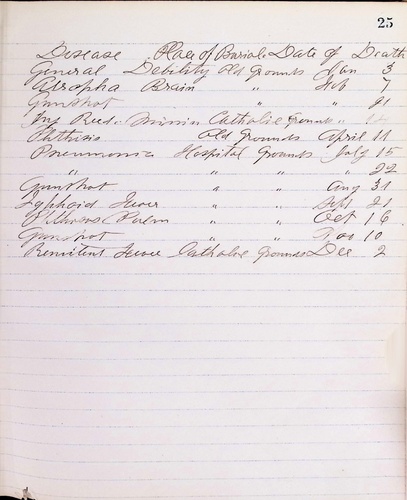 25
Disease Place of Burial. Date of Death
General Debility Old Grounds Jan 3
Atropha Brain " Feb 7
Gunshot " " 21
Catholic Grounds "
Phthisis Old Grounds April 11
Pneumonia Hospital Grounds July 15
" " " 22
Gunshot " " Aug 31
Typhoid Fever " " Sept 21
" " Oct 16
Gunshot " " Nov 10
Remittent Fever Catholic Grounds Dec 2